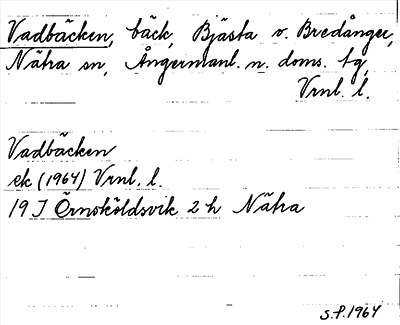 Vadbäcken, bäck, Bjästa v. Bredånger,
Nätra sn, Ångermanl. n. doms. tg,
Vrnl. l.
Vadbäcken
ek (1964) Vrnl. l.
19 J Örnsköldsvik 2 h Nätra
S.P. 1964